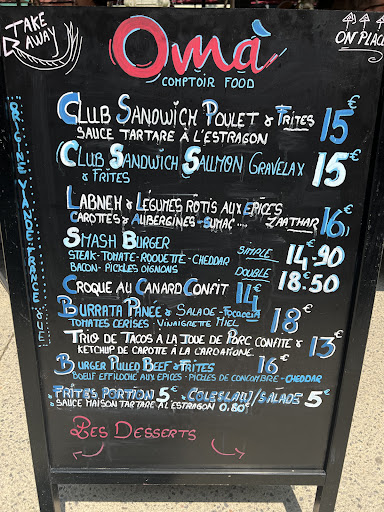 TAKE
AWAY
Omà
COMPTOIR FOOD
ON PLACE
ORIGINE VIANDE FRANCE & UE
CLUB SANDWICH POULET & FRITES 15€
SAUCE TARTARE À L'ESTRAGON
CLUB SANDWICH SAUMON GRAVELAX 15€
& FRITES
LABNEH & LÉGUMES ROTIS AUX ÉPICES 16€
CAROTTES & AUBERGINES - SUMAC .... ZAATHAR
SMASH BURGER
STEAK-TOMATE-ROQUETTE-CHEDDAR SIMPLE 14€90
BACON - PICKLES OIGNONS DOUBLE 18€50
CROQUE AU CANARD CONFIT 14€
BURRATA PANÉE & SALADE - FOCACCIA 18€
TOMATES CERISES - VINAIGRETTE MIEL
TRIO DE TACOS À LA JOUE DE PORC CONFITE & 13€
KETCHUP DE CAROTE À LA CARDAMONE
BURGER PULLED BEEF & FRITES 16€
BOEUF EFFILOCHÉ AUX EPICES - PICKLES DE CONCOMBRE - CHEDDAR
FRITES PORTION 5€ & COLESLAW/SALADE 5€
& SAUCE MAISON TARTARE AL'ESTRAGON 0.80€
DES DESSERTS